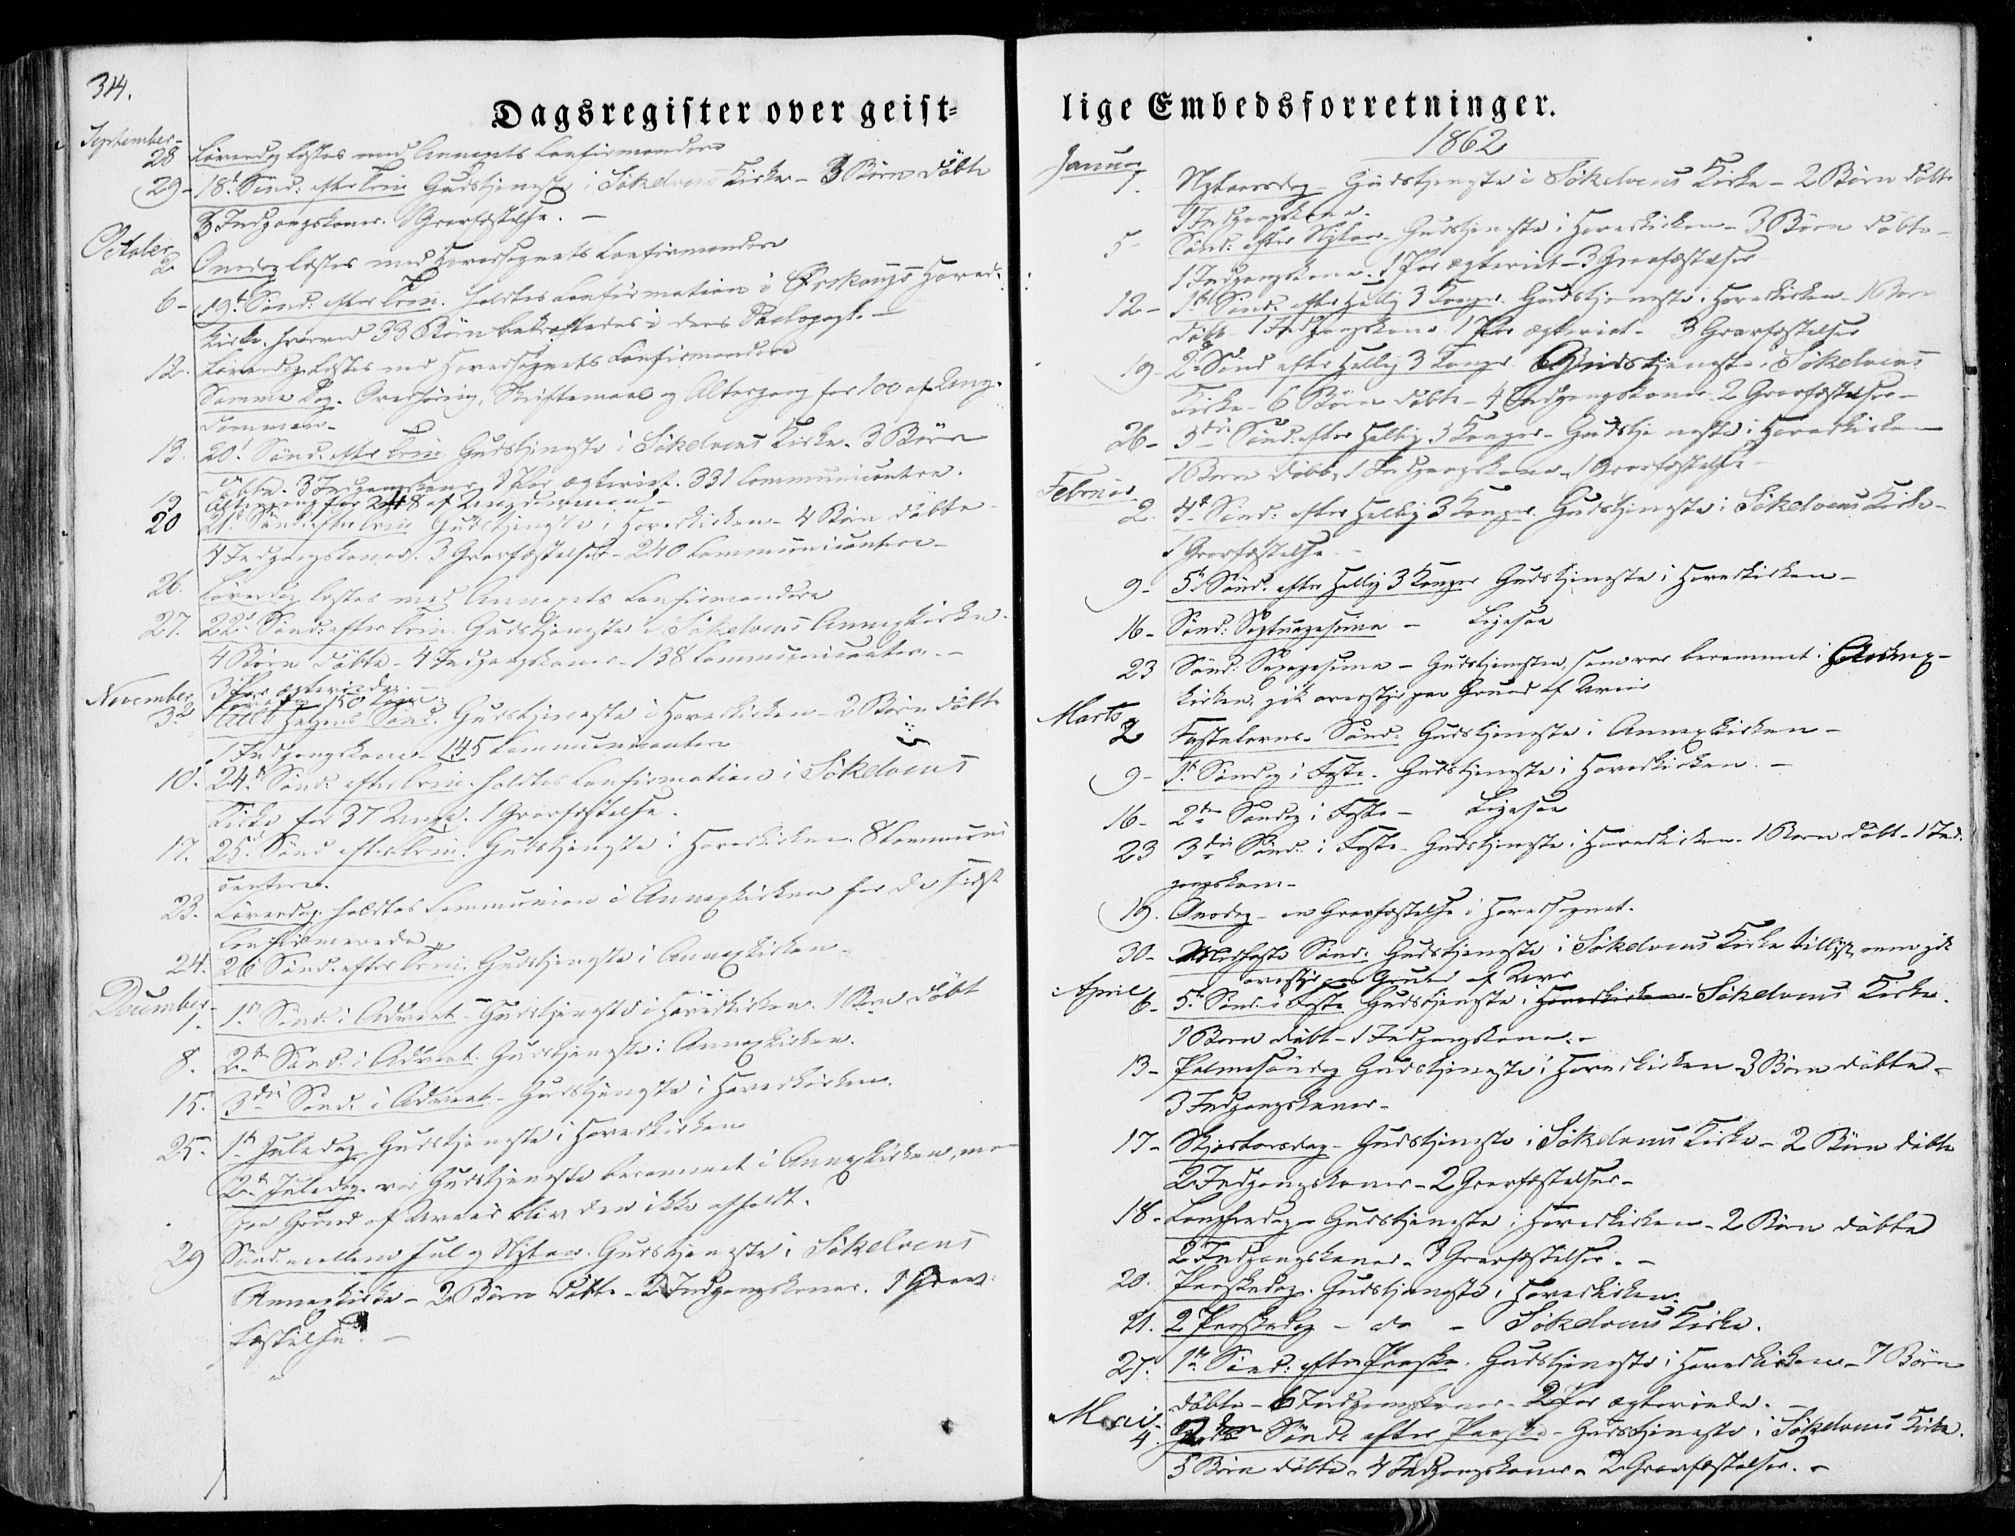 314.
Dagsregister over geist=
September
28 Löverdag læstes med Annexets Confirmander
29 - 18d. Sönd. efter Trin. Gudstjeneste i Sökelvens Kirke - 3 Börn döbte
3 Indgangskoner. 1 Gravfæstelse. -
October
2 Onsdag læstes med Hovedsognets Confirmander
6 - 19d. Sönd. efter Trin. holdtes Confirmation i Ørskougs Hoved-
kirke, hvorved 33 Börn bekræftedes i deres Daabspagt. -
12. Löverdag læstes med Hovedsognets Confirmander
Samme Dag. Overhöring, Skriftemaal og Altergang for 100 af Ung-
dommen -
13. 20d. Sönd. efter Trin. Gudstjeneste i Sökelvens Kirke. 3 Börn
döbte. 3 Indgangskoner 1 Par ægteviet. 331 Communicantere.
Altergang for 248 af Ungdommen -
20 21d Sönd. efter Trin Gudstjeneste i Hovedkirken - 4 Börn döbte -
4 Indgangskoner. 3 Gravfæstelser - 240 Communicantere -
26. Löverdag læstes med Annexets Confirmander
27. 22d. Sönd. efter Trin. Gudstjeneste i Sökelvens Annexkirke.
4 Börn döbte - 4 Indgangskoner - 138 Communicantere. -
3 Par ægteviede. -
November
3 Alle Helgens Sönd. Gudstjeneste i Hovedkirken - 2 Börn döbte
1 Indgangskone 145 Communicantere
10. 24d. Sönd. efter Trin. holdtes Confirmation i Sökelvens
Kirke for 37 Unge. 1 Gravfæstelse.
17. 25d. Sönd. efter Trin. Gudstjeneste i Hovedkirken. 8 Communi
cantere.
23. Löverdag. holdtes Communion i Annexkirken for de sidst
Confirmerede
24. 26 Sönd. efter Trin. Gudstjeneste i Annexkirken -
December
1. 1ste Sönd. i Advent - Gudstjeneste i Hovedkirken. 1 Barn döbt
8. 2den Sönd. i Advent. Gudstjeneste i Annexkirken.
15. 3die Sönd. i Advent - Gudstjeneste i Hovedkirken.
25. 1ste Juledag Gudstjeneste i Hovedkirken
2d. Juledag. var Gudstjeneste berammet i Annexkirken, men
paa Grund af Uveir blev den ikke afholdt.
29 Sönd. mellem Jul og Nytaar. Gudstjeneste i Sökelvens
Annexkirke - 2 Börn döbte - 2 Indgangskoner. 1 Grav-
fæstelse. -
lige Embedsforretninger.
1862
Januar
1. Nytaarsdag - Gudstjeneste i Sökelvens Kirke - 2 Börn döbte
1 Indgangskone.
5 - Sönd. efter Nytaar - Gudstjeneste i Hovedkirken - 3 Börn döbte -
1 Indgangskone. 1 Par ægteviet - 3 Gravfæstelser
12 - 1ste Sönd. efter Hellig 3 Konger. Gudstjeneste i Hovedkirken - 1 Barn
döbt - 1 Indgangskone 1 Par ægteviet - 3 Gravfæstelser
19 - 2d. Sönd efter Hellig 3 Konger. Gudstjeneste i Sökelvens
Kirke - 6 Börn döbte - 4 Indgangskoner. 2 Gravfæstelser -
26 - 3die Sönd. efter Hellig 3 Konger - Gudstjeneste i Hovedkirken
1 Barn döbt, 1 Indgangskone, 1 Gravfæstelse -
Februar
2. 4d. Sönd. efter Hellig 3 Konger. Gudstjeneste i Sökelvens Kirke -
1 Gravfæstelse -
9 - 5d. Sönd. efter Hellig 3 Konger Gudstjeneste i Hovedkirken -
16 - Sönd. Septuagesima - Ligesaa
23 Sönd. Sexagesima - Gudstjenesten, som var berammet i Annex-
kirken, gik overstyr paa Grund af Uveir
Marts
2 Fastelavns Sönd. Gudstjeneste i Annexkirken -
9 - 1ste Söndag i Faste. Gudstjeneste i Hovedkirken. -
16 - 2den Söndag i Faste - Ligesaa
23 3die Sönd. i Faste - Gudstjeneste i Hovedkirken. 1 Barn döbt - 1 Ind-
gangskone -
19. Onsdag - en Gravfæstelse i Hovedsognet.
30 - Midfaste Sönd. Gudstjeneste i Sökelvens Kirke gik
overstyr paa Grund af Uveir
April
6 - 5d. Sönd. i Faste Gudstjeneste i Hovedkirken Sökelvens Kirke.
1 Barn döbt - 1 Indgangskone. -
13 - Palmesöndag Gudstjeneste i Hovedkirken - 3 Börn döbte -
3 Indgangskoner -
17 - Skjertorsdag - Gudstjeneste i Sökelvens Kirke - 2 Börn döbte
2 Indgangskoner - 2 Gravfæstelser -
18 - Langfredag - Gudstjeneste i Hovedkirken - 2 Börn döbte
2 Indgangskoner - 3 Gravfæstelser. -
20. Paaskedag. Gudstjeneste i Hovedkirken.
21. 2 Paaskedag - do - Sökelvens Kirke.
27. 1ste Sönd. efter Paaske. Gudstjeneste i Hovedkirken - 7 Börn
döbte - 6 Indgangskoner - 2 Par ægteviede. -
Mai
4. 2den Sönd. efter Paaske - Gudstjeneste i Sökelvens Kirke.
5 Börn döbte - 4 Indgangskoner - 2 Gravfæstelser. -